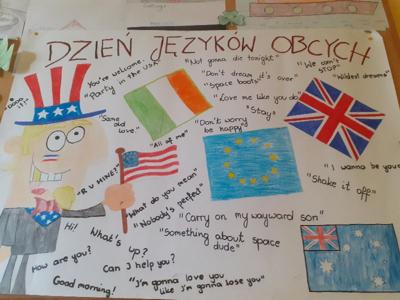 DZIEŃ JĘZYKÓW OBCYCH
"You're welcome."
"Party in the USA"
"Not gonna die tonight"
"We can't
STOP"
"Don't dream it's over"
"Wildest dreams"
"Space boots"
"Love me like you do"
"Same
old
love"
"Stay"
"Don't worry
be happy"
"All of me"
"I wanna be your
"R U MINE?"
"Shake it off"
"What do you mean"
"Nobody's perfect"
"Carry on my wayward son"
Hi!
What's
up?
"Something about space
dude"
How are you?
Can I help you?
Good morning!
"I'm gonna love you
like I'm gonna lose you"